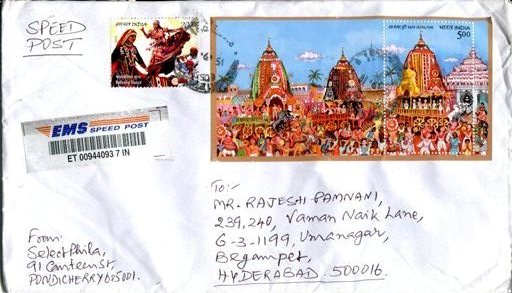 SPEED
POST
भारत INDIA
भारत INDIA
5.00
EMS SPEED POST
ET 00944093 7 IN
To:-
MR. RAJESH PAMNANI,
239,240, Vaman Naik Lane,
6-3-1199, Umanagar,
Begampet,
HYDERABAD-500016.
From:
SelectPhila,
91 Canteen St,
PONDICHERRY 605001.